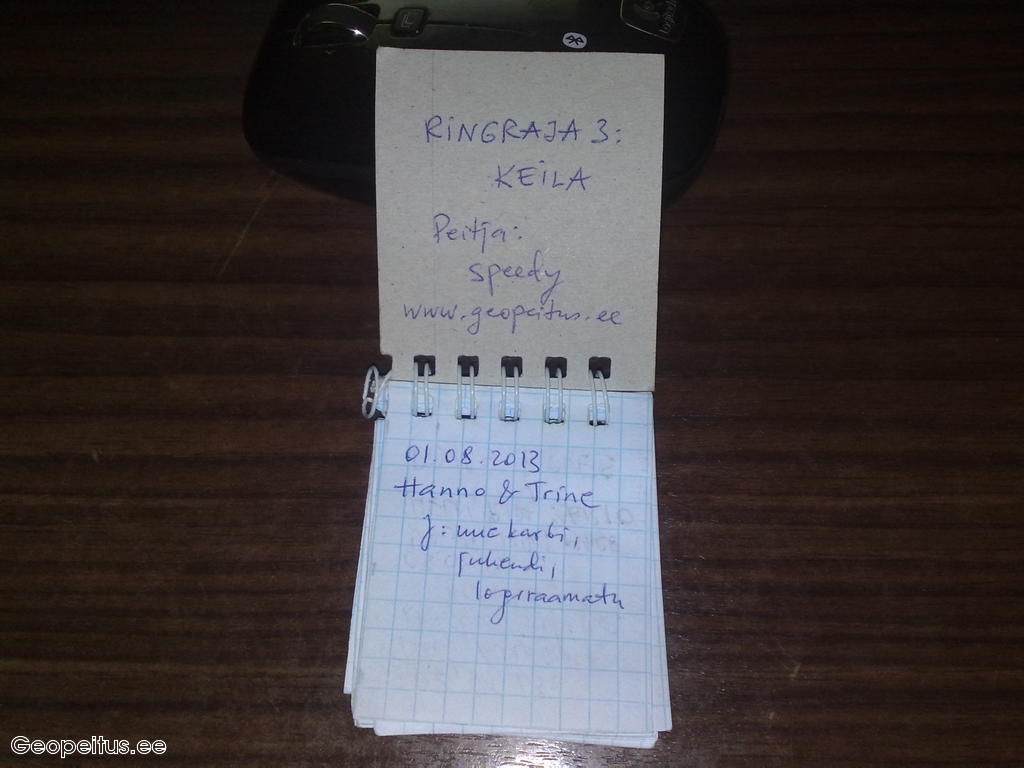 RINGRAJA 3:
KEILA
Peitja:
speedy
www.geopeitus.ee
01.08.2013
Hanno & Trine
J: uue karbi,
juhendi,
logiraamatu
Geopeitus.ee